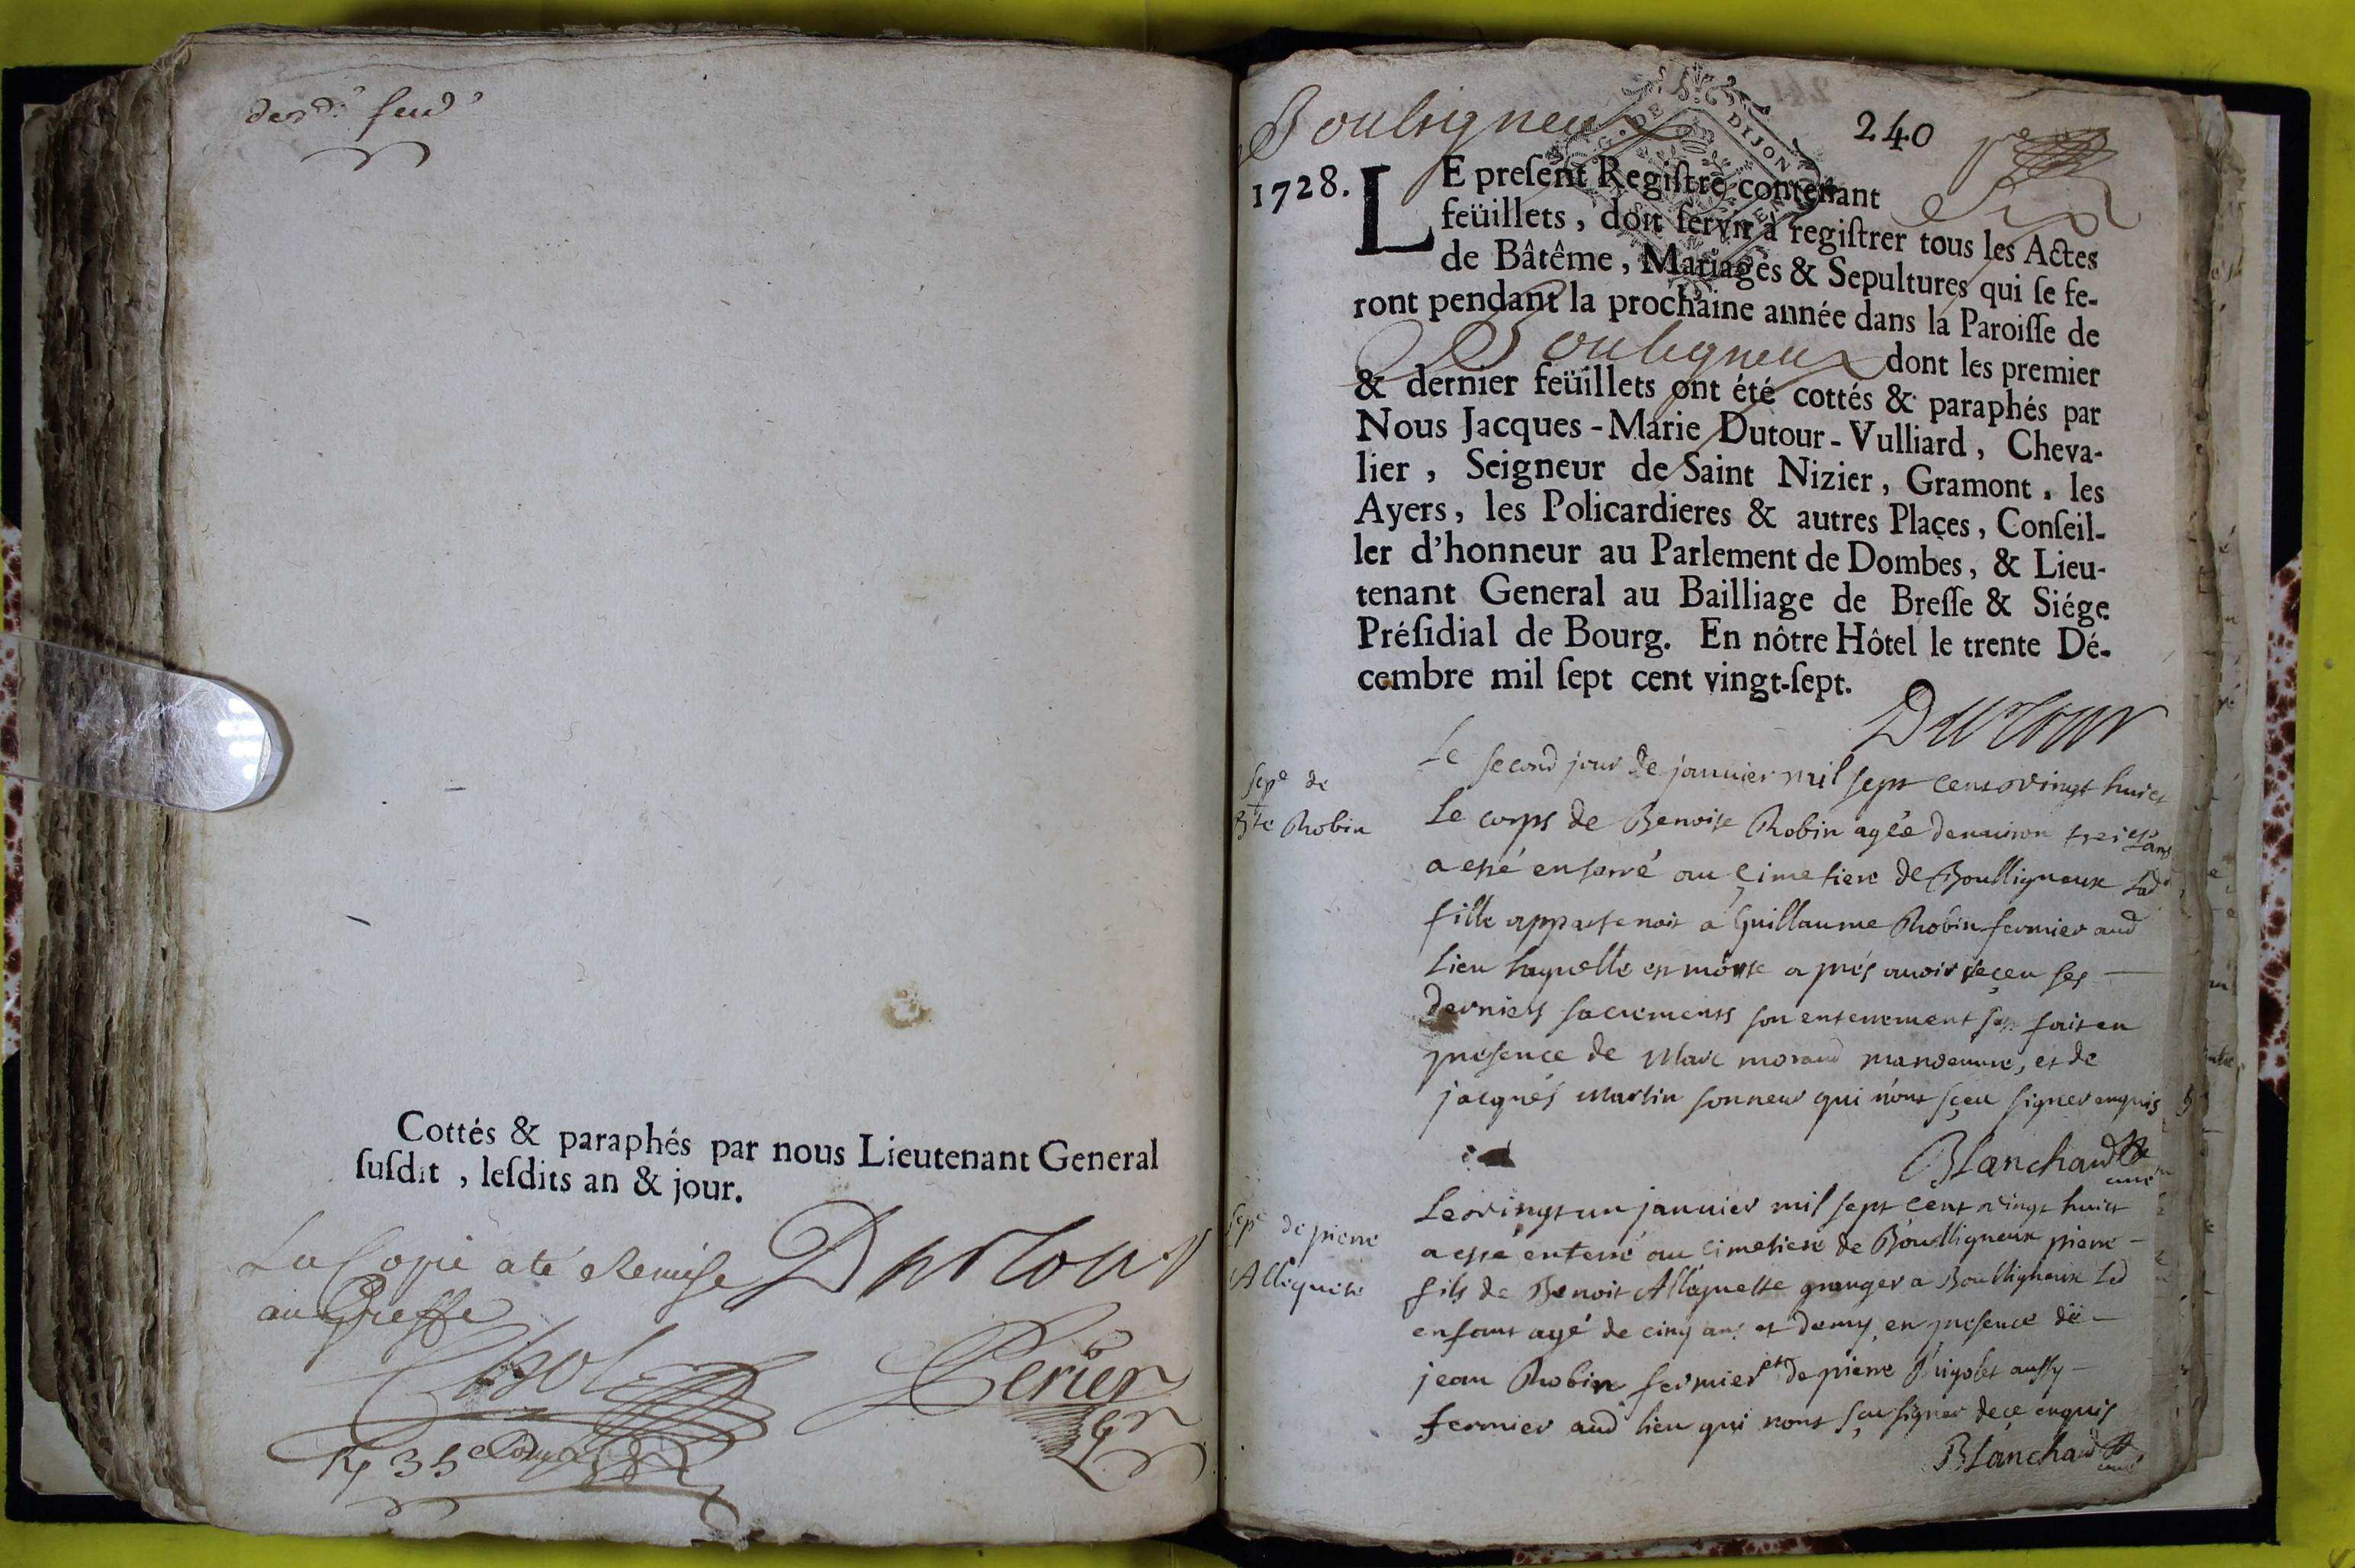 Cottés & paraphés par nous Lieutenant General
ſuſdit, leſdits an & jour.
La Copie a été Remise
au Greffe
Dutour
Perier
Bouligneux
240
GEN. DE DIJON
1728.
LE preſent Regiſtre contenant
feüillets, doit ſervir à regiſtrer tous les Actes
de Bâtême, Mariages & Sepultures qui ſe fe-
ront pendant la prochaine année dans la Paroiſſe de
Bouligneux dont les premier
& dernier feüillets ont été cottés & paraphés par
Nous Jacques-Marie Dutour-Vulliard, Cheva-
lier, Seigneur de Saint Nizier, Gramont, les
Ayers, les Policardieres & autres Places, Conſeil-
ler d'honneur au Parlement de Dombes, & Lieu-
tenant General au Bailliage de Breſſe & Siége
Préſidial de Bourg. En nôtre Hôtel le trente Dé-
cembre mil ſept cent vingt-ſept.
Dutour
Sep.e de
Bte Robin
Le second jour de januier mil sept cent vingt huict
Le corps de Benoite Robin agée denuiron treise ans
a esté enterré au cimetiere de Boulligneux lad
fille appartenoit a Guillaume Robin fermier aud
lieu laquelle est morte aprés auoir reçeu ses
derniers sacrements son enterrement fait en
presence de Marc morand et de
jacques Martin sonneur qui n'ont sçeu signer enquis
Blanchard curé
Sep.e de pierre
Alliquete
Le vingt un januier mil sept cent vingt huict
a esté enterré au cimetiere de Boulligneux pierre
fils de Benoit Allaquette granger a Boulligneux led
enfant agé de cinq ans et demy en presence de
jean Robin fermier et de pierre aussy
fermier aud lieu qui nont sçeu signer de ce enquis
Blanchard curé